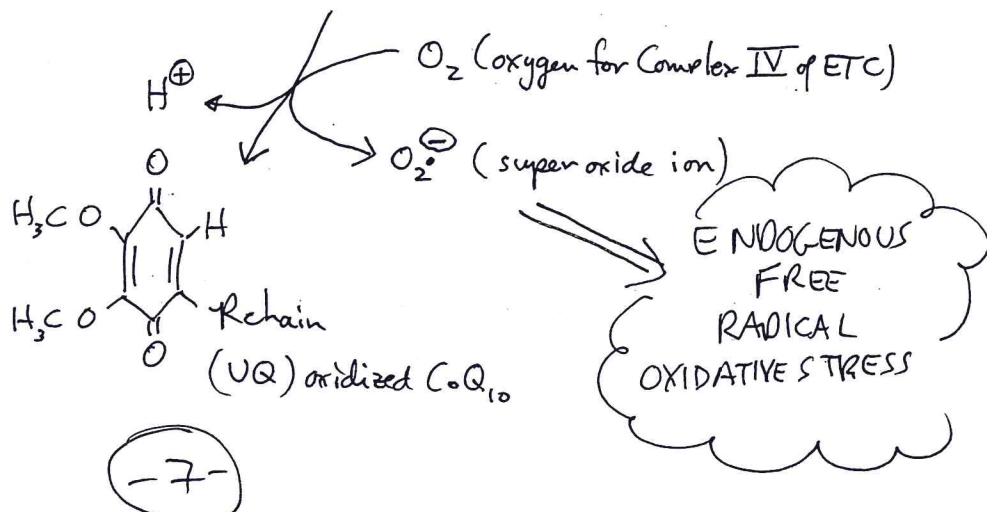 O₂ (oxygen for Complex IV of ETC)
H⊕
O₂•⊖ (superoxide ion)
O
H₃CO
H
H₃CO
Rchain
O
(UQ) oxidized CoQ₁₀
ENDOGENOUS
FREE
RADICAL
OXIDATIVE STRESS
-7-